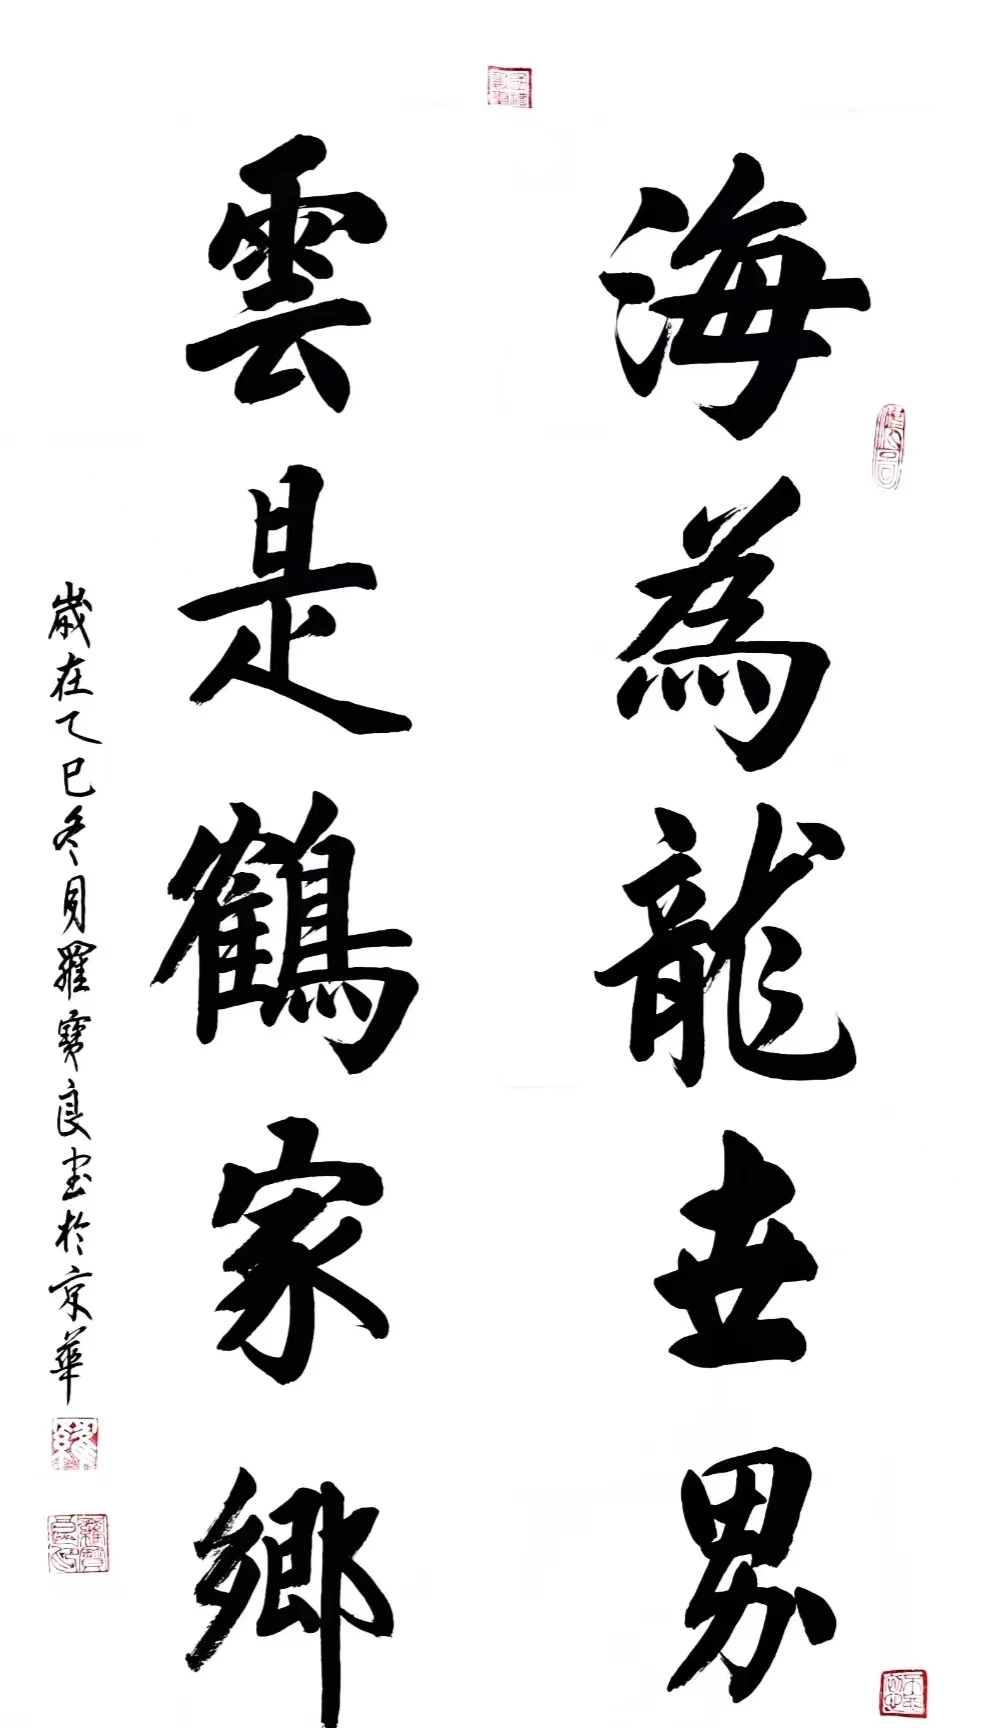 海為龍世界
雲是鶴家鄉
歲在乙巳冬月羅寶良書於京華